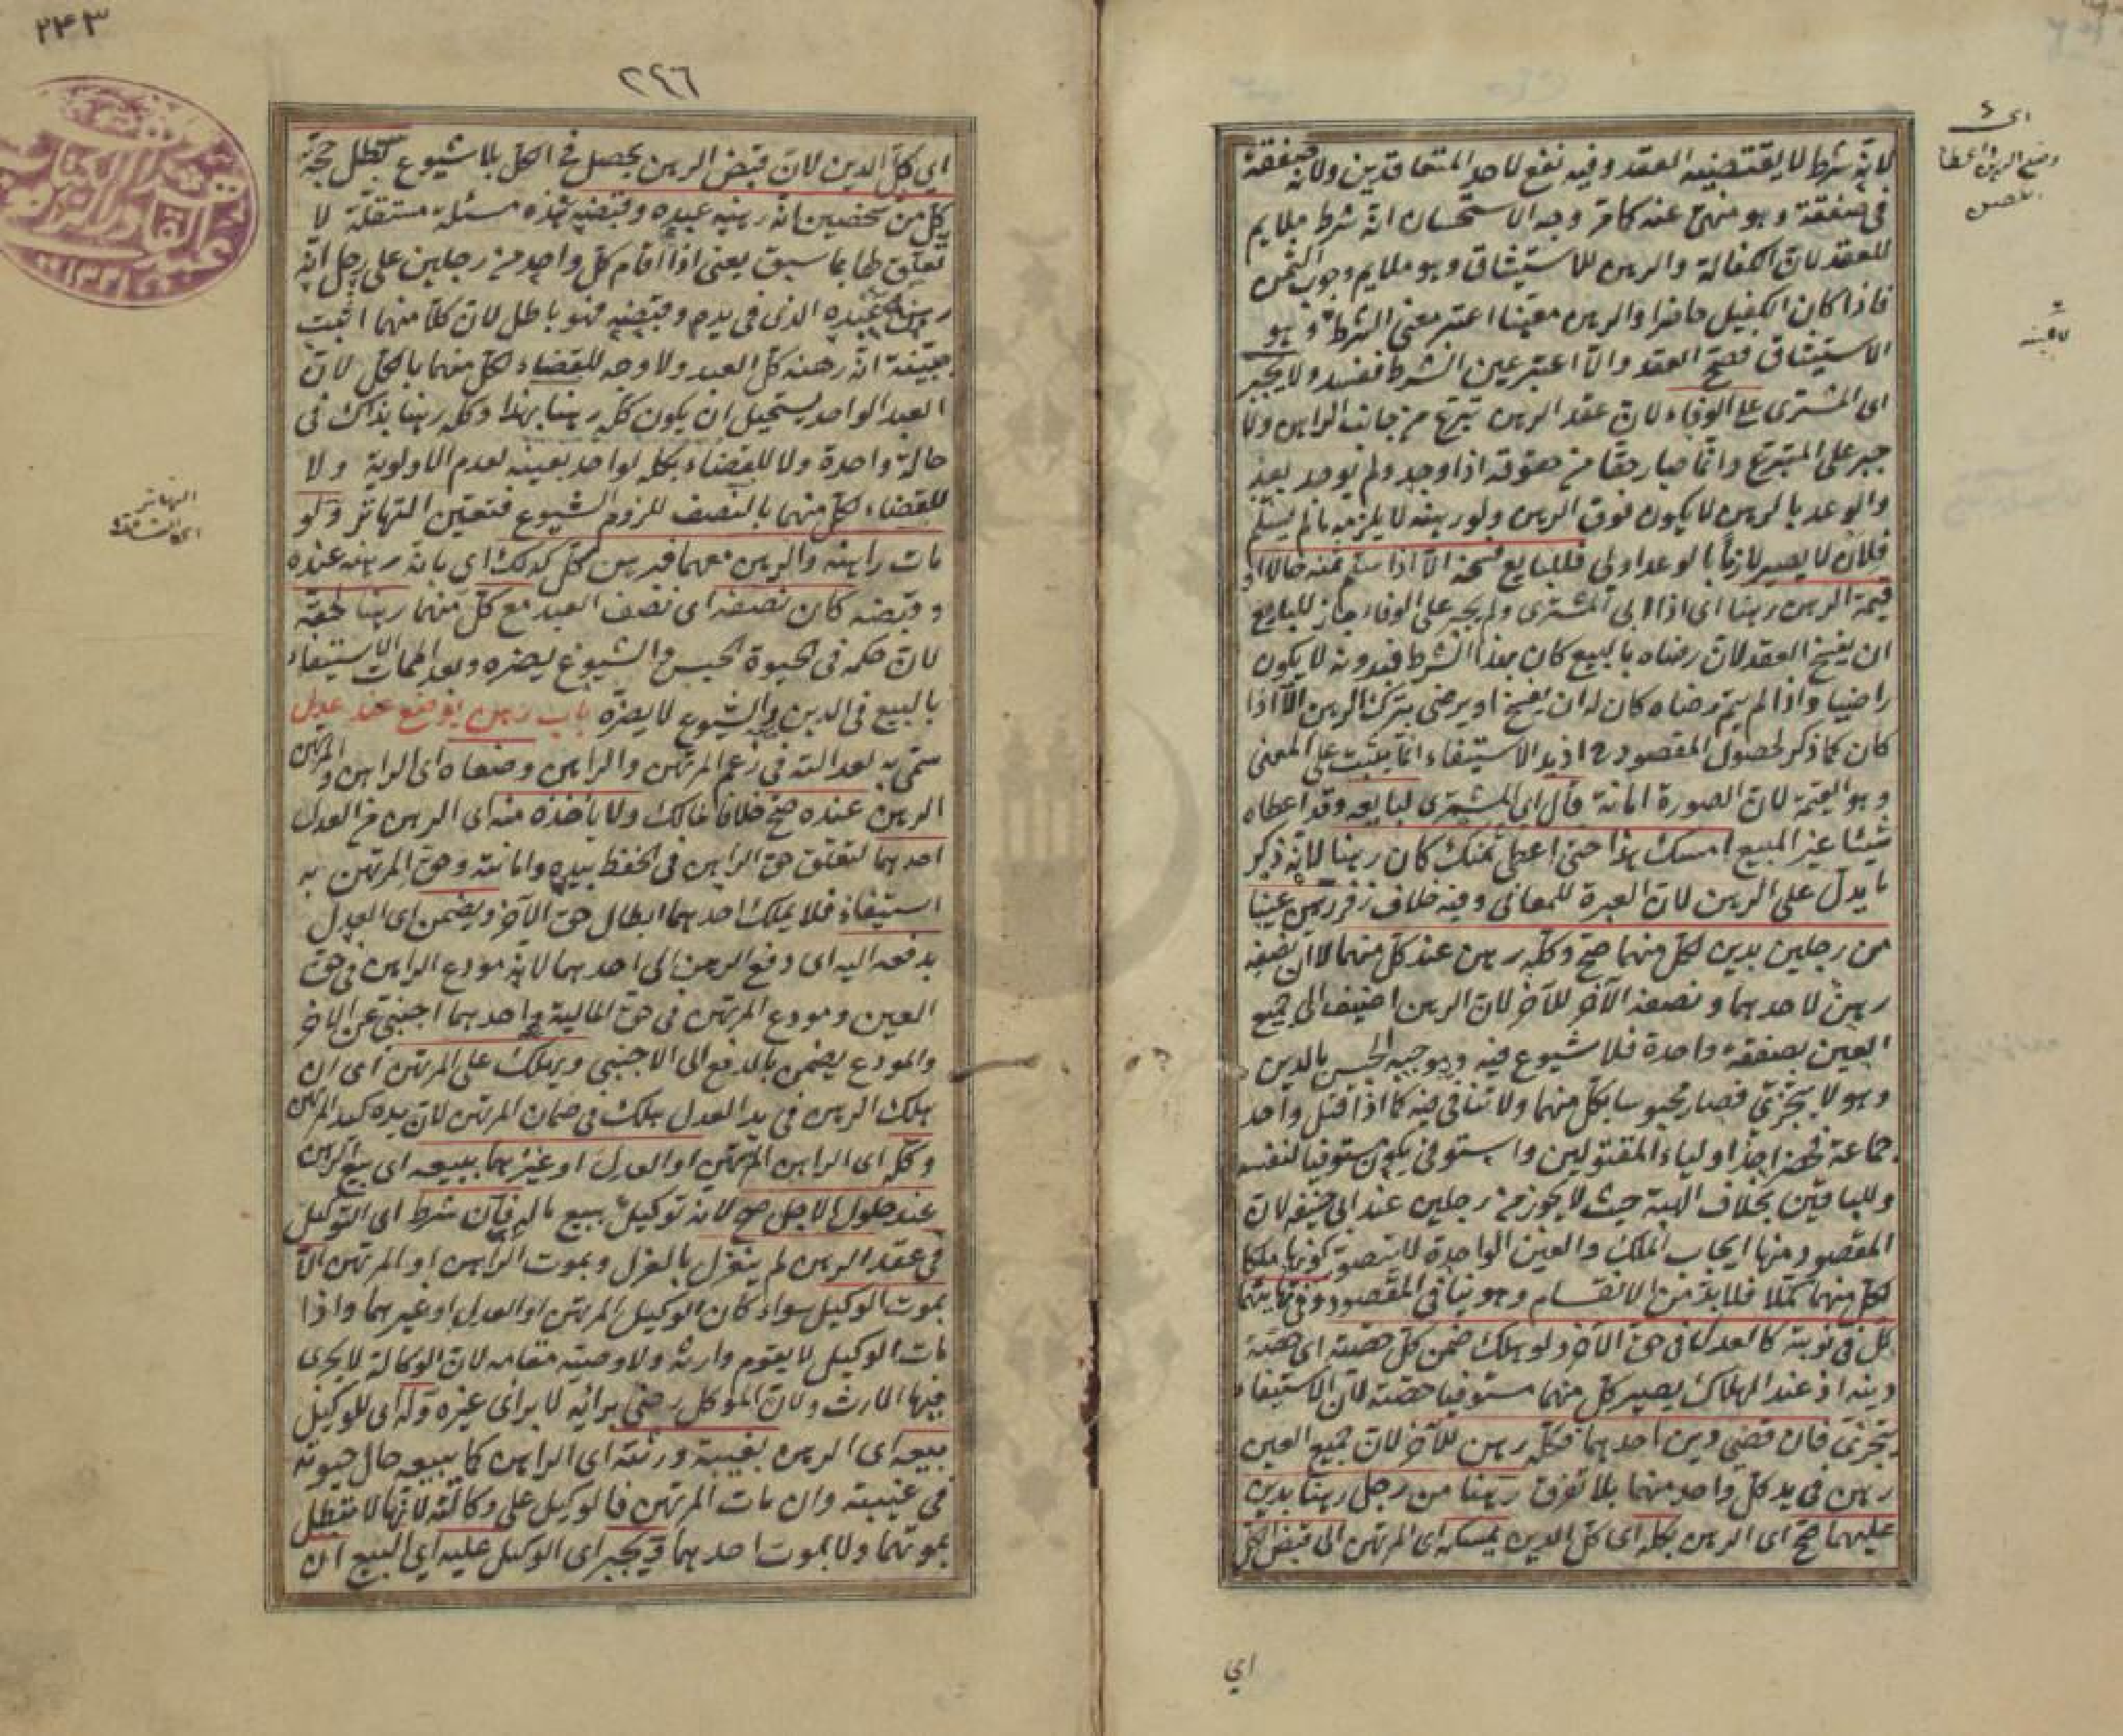 لانه شرط لا يقتضيه العقد وفيه نفع لاحد المتعاقدين ولانه صفقة
في صفقة وهو منهى عنه كما مر وجه الاستحسان انه شرط ملايم
للعقد لان الكفالة والرهن للاستيثاق وهو ملايم وجوب الثمن
فاذا كان الكفيل حاضرا والرهن معينا اعتبر معنى الشرط وهو
الاستيثاق فصح العقد والا اعتبر عين الشرط ففسد ولا يجبر
اى المشترى على الوفاء لان عقد الرهن تبرع من جانب الراهن ولا
جبر على المتبرع وانما صار حقا من حقوقه اذا وجد ولم يوجد بعد
والوعد بالرهن لا يكون فوق الرهن ولو رهنه لا يلزمه ما لم يسلم
فلان لا يصير لازما بالوعد اولى فللبايع فسخه الا اذا سلم ثمنه حالا او
قيمة الرهن رهنا اى اذا ابى المشترى ولم يجبر على الوفاء جاز للبايع
ان يفسخ العقد لان رضاه بالبيع كان بهذا الشرط فبدونه لا يكون
راضيا واذا لم يتم رضاه كان له ان يفسخ او يرضى بترك الرهن الا اذا
كان كما ذكر لحصول المقصود ح اذ يد الاستيفاء انما يثبت على المعنى
وهو القيمة لان الصورة امانة قال اى المشترى لبايعه وقد اعطاه
شيئا غير المبيع امسك هذا حتى اعطى ثمنك كان رهنا لانه ذكر
ما يدل على الرهن لان العبرة للمعانى وفيه خلاف زفر رهن عينا
من رجلين بدين لكل منهما صح وكله رهن عند كل منهما لا ان نصفه
رهن لاحدهما ونصفه الآخر للآخر لان الرهن اضيف الى جميع
العين بصفقة واحدة فلا شيوع فيه وموجبه الحبس بالدين
وهو لا يتجزى فصار محبوسا بكل منهما ولا تنافى فيه كما اذا قتل واحد
جماعة فحضر احد اولياء المقتولين واستوفى يكون مستوفيا لنفسه
وللباقين بخلاف الهبة حيث لا يجوز من رجلين عند ابى حنيفة لان
المقصود منها ايجاب الملك والعين الواحدة لا يتصور كونها ملكا
لكل منهما كملا فلا بد من الانقسام وهو ينافى المقصود وفى تهايئهما
كل فى نوبته كالعدل فى حق الآخر ولو هلك ضمن كل حصته اى حصة
دينه اذ عند الهلاك يصير كل منهما مستوفيا حصته لان الاستيفاء
يتجزى فان قضى دين احدهما فكله رهن للآخر لان جميع العين
رهن فى يد كل واحد منهما بلا تفرق رهنا من رجل رهنا بدين
عليهما صح اى الرهن بكله اى كل الدين يمسكه اى المرتهن الى قبض الكل
اي
اى
وضع الرهن واعطا
٢٤٣
٢٩٦
اى كل الدين لان قبض الرهن يحصل فى الكل بلا شيوع بطل حجة
كل من شخصين انه رهنه عبده وقبضه هذه مسئلة مستقلة لا
تعلق لها بما سبق يعنى اذا اقام كل واحد من رجلين على رجل انه
رهن عبده الذى فى يده وقبضه فهو باطل لان كلا منهما اثبت
ببينة انه رهنه كل العبد ولا وجه للقضاء لكل منهما بالكل لان
العبد الواحد يستحيل ان يكون كله رهنا بهذا وكله رهنا بذاك فى
حالة واحدة ولا للقضاء بكله لواحد بعينه لعدم الاولوية ولا
للقضاء لكل منهما بالنصف للزوم الشيوع فتعين التهاتر ولو
مات راهنه والرهن معهما فبرهن كل كذلك اى بانه رهنه عنده
وقبضه كان نصفه اى نصف العبد مع كل منهما رهنا بحقه
لان حكمه فى الحيوة الحبس والشيوع يضره وبعد الممات الاستيفاء
بالبيع فى الدين والشيوع لا يضره باب رهن يوضع عند عدل
سمى به لعدالته فى زعم المرتهن والراهن وضعاه اى الراهن والمرتهن
الرهن عنده صح خلافا لمالك ولا ياخذه منه اى الرهن من العدل
احدهما لتعلق حق الراهن فى الحفظ بيده وامانته وحق المرتهن به
استيفاء فلا يملك احدهما ابطال حق الآخر ويضمن اى العدل
بدفعه اليه اى دفع الرهن الى احدهما لانه مودع الراهن فى حق
العين ومودع المرتهن فى حق المالية واحدهما اجنبى عن الآخر
والمودع يضمن بالدفع الى الاجنبى ويهلك على المرتهن اى ان
هلك الرهن فى يد العدل هلك فى ضمان المرتهن لان يده كيد المرتهن
وكل اى الراهن المرتهن او العدل او غيرهما ببيعه اى بيع الرهن
عند حلول الاجل صح لانه توكيل ببيع ماله فان شرط اى التوكيل
فى عقد الرهن لم ينعزل بالعزل وبموت الراهن او المرتهن الا
بموت الوكيل سواء كان الوكيل المرتهن او العدل او غيرهما واذا
مات الوكيل لا يقوم وارثه ولا وصيه مقامه لان الوكالة لا يجرى
فيها الارث ولان الموكل رضى برائه لا براى غيره وله اى للوكيل
بيعه اى الرهن بغيبة ورثته اى الراهن كما يبيعه حال حيوته
فى غيبته وان مات المرتهن فالوكيل على وكالته لانها لا تبطل
بموتهما ولا بموت احدهما ويجبر اى الوكيل عليه اى البيع ان
التهاتر